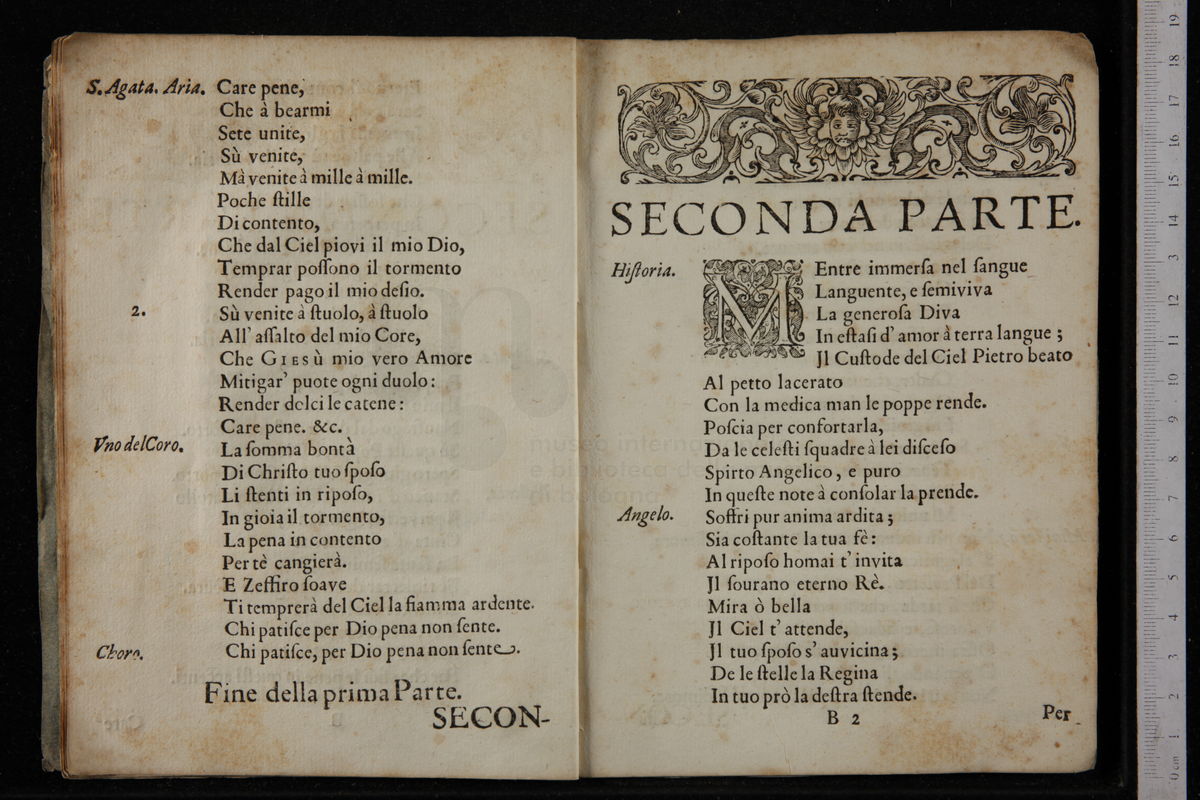 S. Agata. Aria. Care pene,
Che à bearmi
Sete unite,
Sù venite,
Mà venite à mille à mille.
Poche ſtille
Di contento,
Che dal Ciel piovi il mio Dio,
Temprar poſſono il tormento
Render pago il mio deſio.
2. Sù venite à ſtuolo, à ſtuolo
All' aſſalto del mio Core,
Che GIESÙ mio vero Amore
Mitigar' puote ogni duolo:
Render dolci le catene:
Care pene. &c.
Vno del Coro. La ſomma bontà
Di Chriſto tuo ſpoſo
Li ſtenti in ripoſo,
In gioia il tormento,
La pena in contento
Per tè cangierà.
E Zeffiro ſoave
Ti temprerà del Ciel la fiamma ardente.
Chi patiſce per Dio pena non ſente.
Choro. Chi patiſce, per Dio pena non ſente.
Fine della prima Parte.
SECON-
SECONDA PARTE.
Hiſtoria. MEntre immerſa nel ſangue
Languente, e ſemiviva
La generoſa Diva
In eſtaſi d' amor à terra langue;
Jl Cuſtode del Ciel Pietro beato
Al petto lacerato
Con la medica man le poppe rende.
Poſcia per confortarla,
Da le celeſti ſquadre à lei diſceſo
Spirto Angelico, e puro
In queſte note à conſolar la prende.
Angelo. Soffri pur anima ardita;
Sia coſtante la tua fè:
Al ripoſo homai t' invita
Jl ſourano eterno Rè.
Mira ò bella
Jl Ciel t' attende,
Jl tuo ſpoſo s' auvicina;
De le ſtelle la Regina
In tuo prò la deſtra ſtende.
B 2
Per
museo interna
e biblioteca de
di bologna
0 cm 1 2 3 4 5 6 7 8 9 10 11 12 13 14 15 16 17 18 19